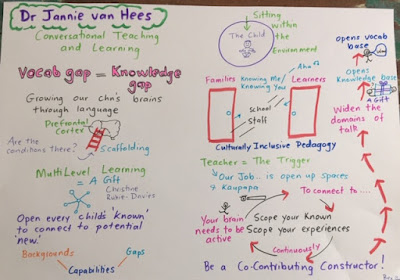 Dr Jannie van Hees
Conversational Teaching
and Learning
Vocab gap = Knowledge
gap
Growing our chn's brains
through language
Prefrontal
Cortex
Are the
conditions there?
Scaffolding
MultiLevel Learning
= A Gift
Christine
Rubie-Davies
Open every child's 'known'
to connect to potential
'new.'
Backgrounds
Gaps
Capabilities
Sitting
within
the
Environment
The Child
Families
Knowing Me/
Knowing You
Aha
Learners
School
Staff
Culturally Inclusive Pedagogy
Teacher = The Trigger
Our Job.. is open up Spaces
& Kaupapa
To connect to ....
Your brain
needs to be
active
Scope your Known
Scope your experiences
Continuously
Be a Co-Contributing Constructor!
opens vocab
base
Opens
Knowledge base
A Gift
Widen the
domains of
talk